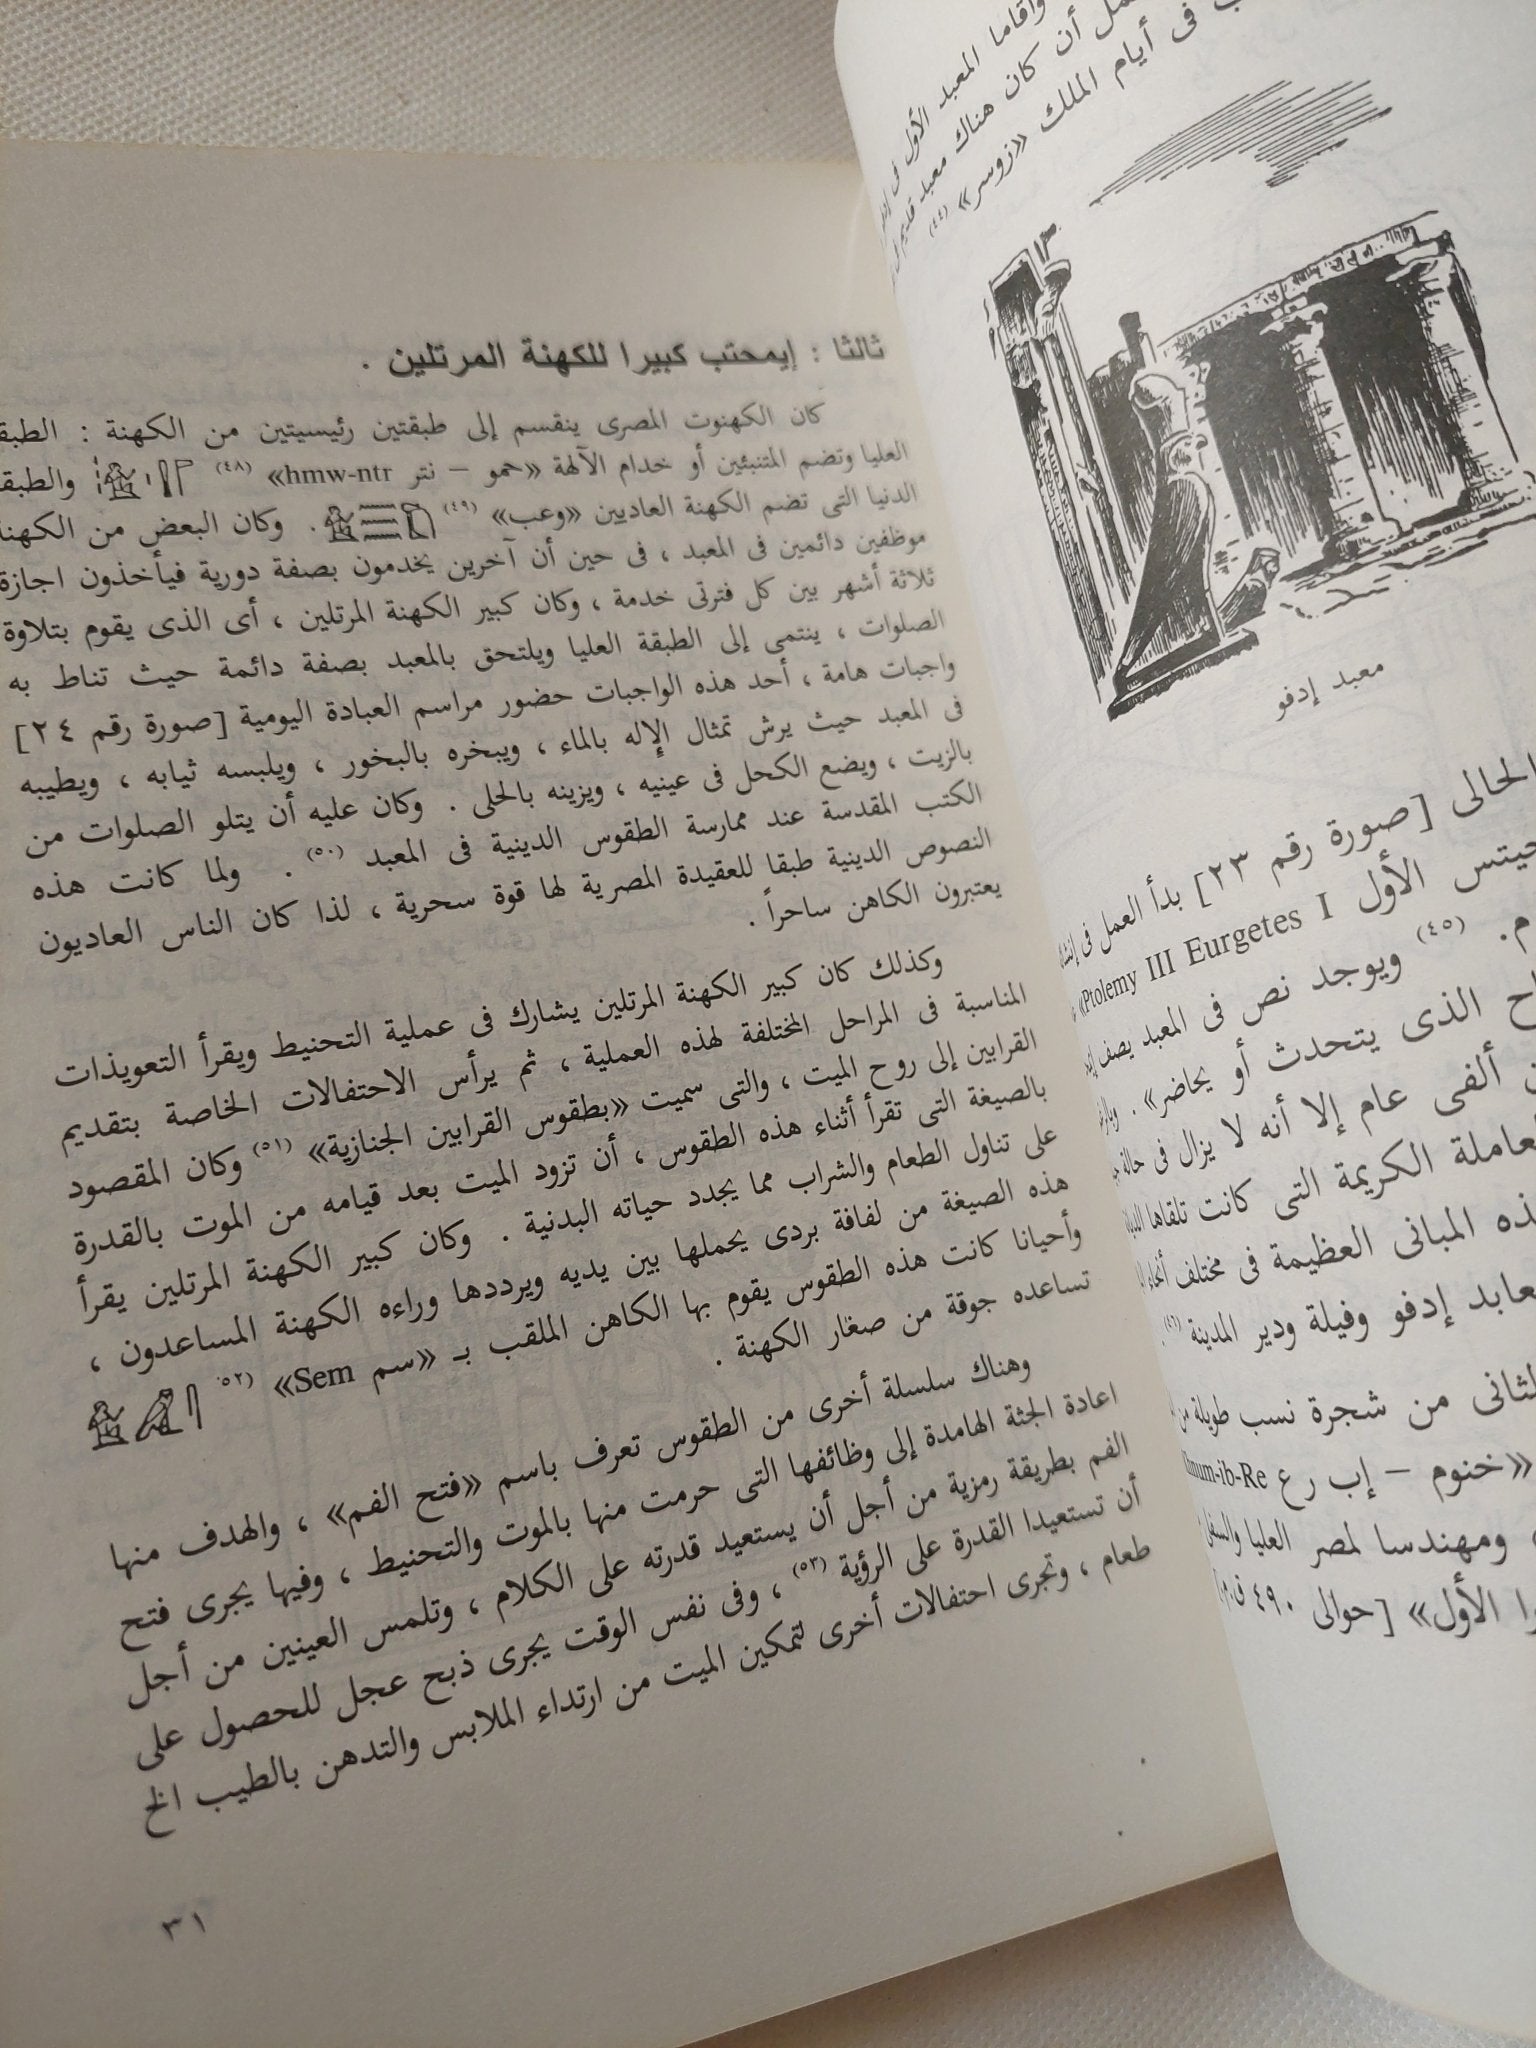 وأقاما المعبد الأول فى
أن كان هناك معبد قديم
فى أيام الملك «زوسر» (٤٤)
معبد إدفو
الحالى [صورة رقم ٢٣] بدأ العمل فى
الأول Ptolemy III Eurgetes I»
م. (٤٥) ويوجد نص فى المعبد يصف
الذى يتحدث أو يحاضر» .
ألفى عام إلا أنه لا يزال فى حالة
الكريمة التى كانت تلقاها
المبانى العظيمة فى مختلف
إدفو وفيلة ودير المدينة (٤٦).
من شجرة نسب طويلة
«خنوم – إب رع
ومهندسا لمصر العليا والسفلى
الأول» [حوالى ٤٩٠ ق.م]
ثالثا : إيمحتب كبيرا للكهنة المرتلين .
كان الكهنوت المصرى ينقسم إلى طبقتين رئيسيتين من الكهنة :
العليا وتضم المتنبئين أو خدام الآلهة «حمو – نتر hmw-ntr» (٤٨)
الدنيا التى تضم الكهنة العاديين «وعب» (٤٩) . وكان البعض من
موظفين دائمين فى المعبد ، فى حين أن آخرين يخدمون بصفة دورية فيأخذون اجازة
ثلاثة أشهر بين كل فترتى خدمة ، وكان كبير الكهنة المرتلين ، أى الذى يقوم بتلاوة
الصلوات ، ينتمى إلى الطبقة العليا ويلتحق بالمعبد بصفة دائمة حيث تناط به
واجبات هامة ، أحد هذه الواجبات حضور مراسم العبادة اليومية [صورة رقم ٢٤]
فى المعبد حيث يرش تمثال الإله بالماء ، ويبخره بالبخور ، ويلبسه ثيابه ، ويطيبه
بالزيت ، ويضع الكحل فى عينيه ، ويزينه بالحلى . وكان عليه أن يتلو الصلوات من
الكتب المقدسة عند ممارسة الطقوس الدينية فى المعبد (٥٠) . ولما كانت هذه
النصوص الدينية طبقا للعقيدة المصرية لها قوة سحرية ، لذا كان الناس العاديون
يعتبرون الكاهن ساحراً .
وكذلك كان كبير الكهنة المرتلين يشارك فى عملية التحنيط ويقرأ التعويذات
المناسبة فى المراحل المختلفة لهذه العملية ، ثم يرأس الاحتفالات الخاصة بتقديم
القرابين إلى روح الميت ، والتى سميت «بطقوس القرابين الجنازية» (٥١) وكان المقصود
بالصيغة التى تقرأ أثناء هذه الطقوس ، أن تزود الميت بعد قيامه من الموت بالقدرة
على تناول الطعام والشراب مما يجدد حياته البدنية . وكان كبير الكهنة المرتلين يقرأ
هذه الصيغة من لفافة بردى يحملها بين يديه ويرددها وراءه الكهنة المساعدون ،
وأحيانا كانت هذه الطقوس يقوم بها الكاهن الملقب بـ «سم Sem» (٥٢)
تساعده جوقة من صغار الكهنة .
وهناك سلسلة أخرى من الطقوس تعرف باسم «فتح الفم» ، والهدف منها
اعادة الجثة الهامدة إلى وظائفها التى حرمت منها بالموت والتحنيط ، وفيها يجرى فتح
الفم بطريقة رمزية من أجل أن يستعيد قدرته على الكلام ، وتلمس العينين من أجل
أن تستعيدا القدرة على الرؤية (٥٣) ، وفى نفس الوقت يجرى ذبح عجل للحصول على
طعام ، وتجرى احتفالات أخرى لتمكين الميت من ارتداء الملابس والتدهن بالطيب الخ
٣١